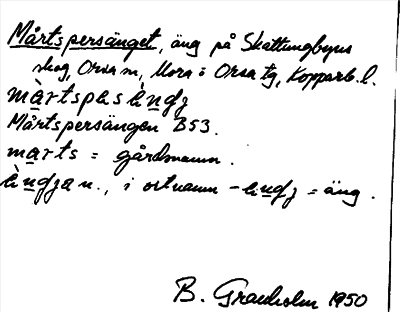 Mårtspersänget, äng på Skattungbyns
skog, Orsa sn, Mora o Orsa tg, Kopparb. l.
màrtspesèndʒ
Mårtspersängen B53.
marts = gårdsnamn.
èndʒa n., i ortnamn -endʒ = äng.
B. Granholm 1950